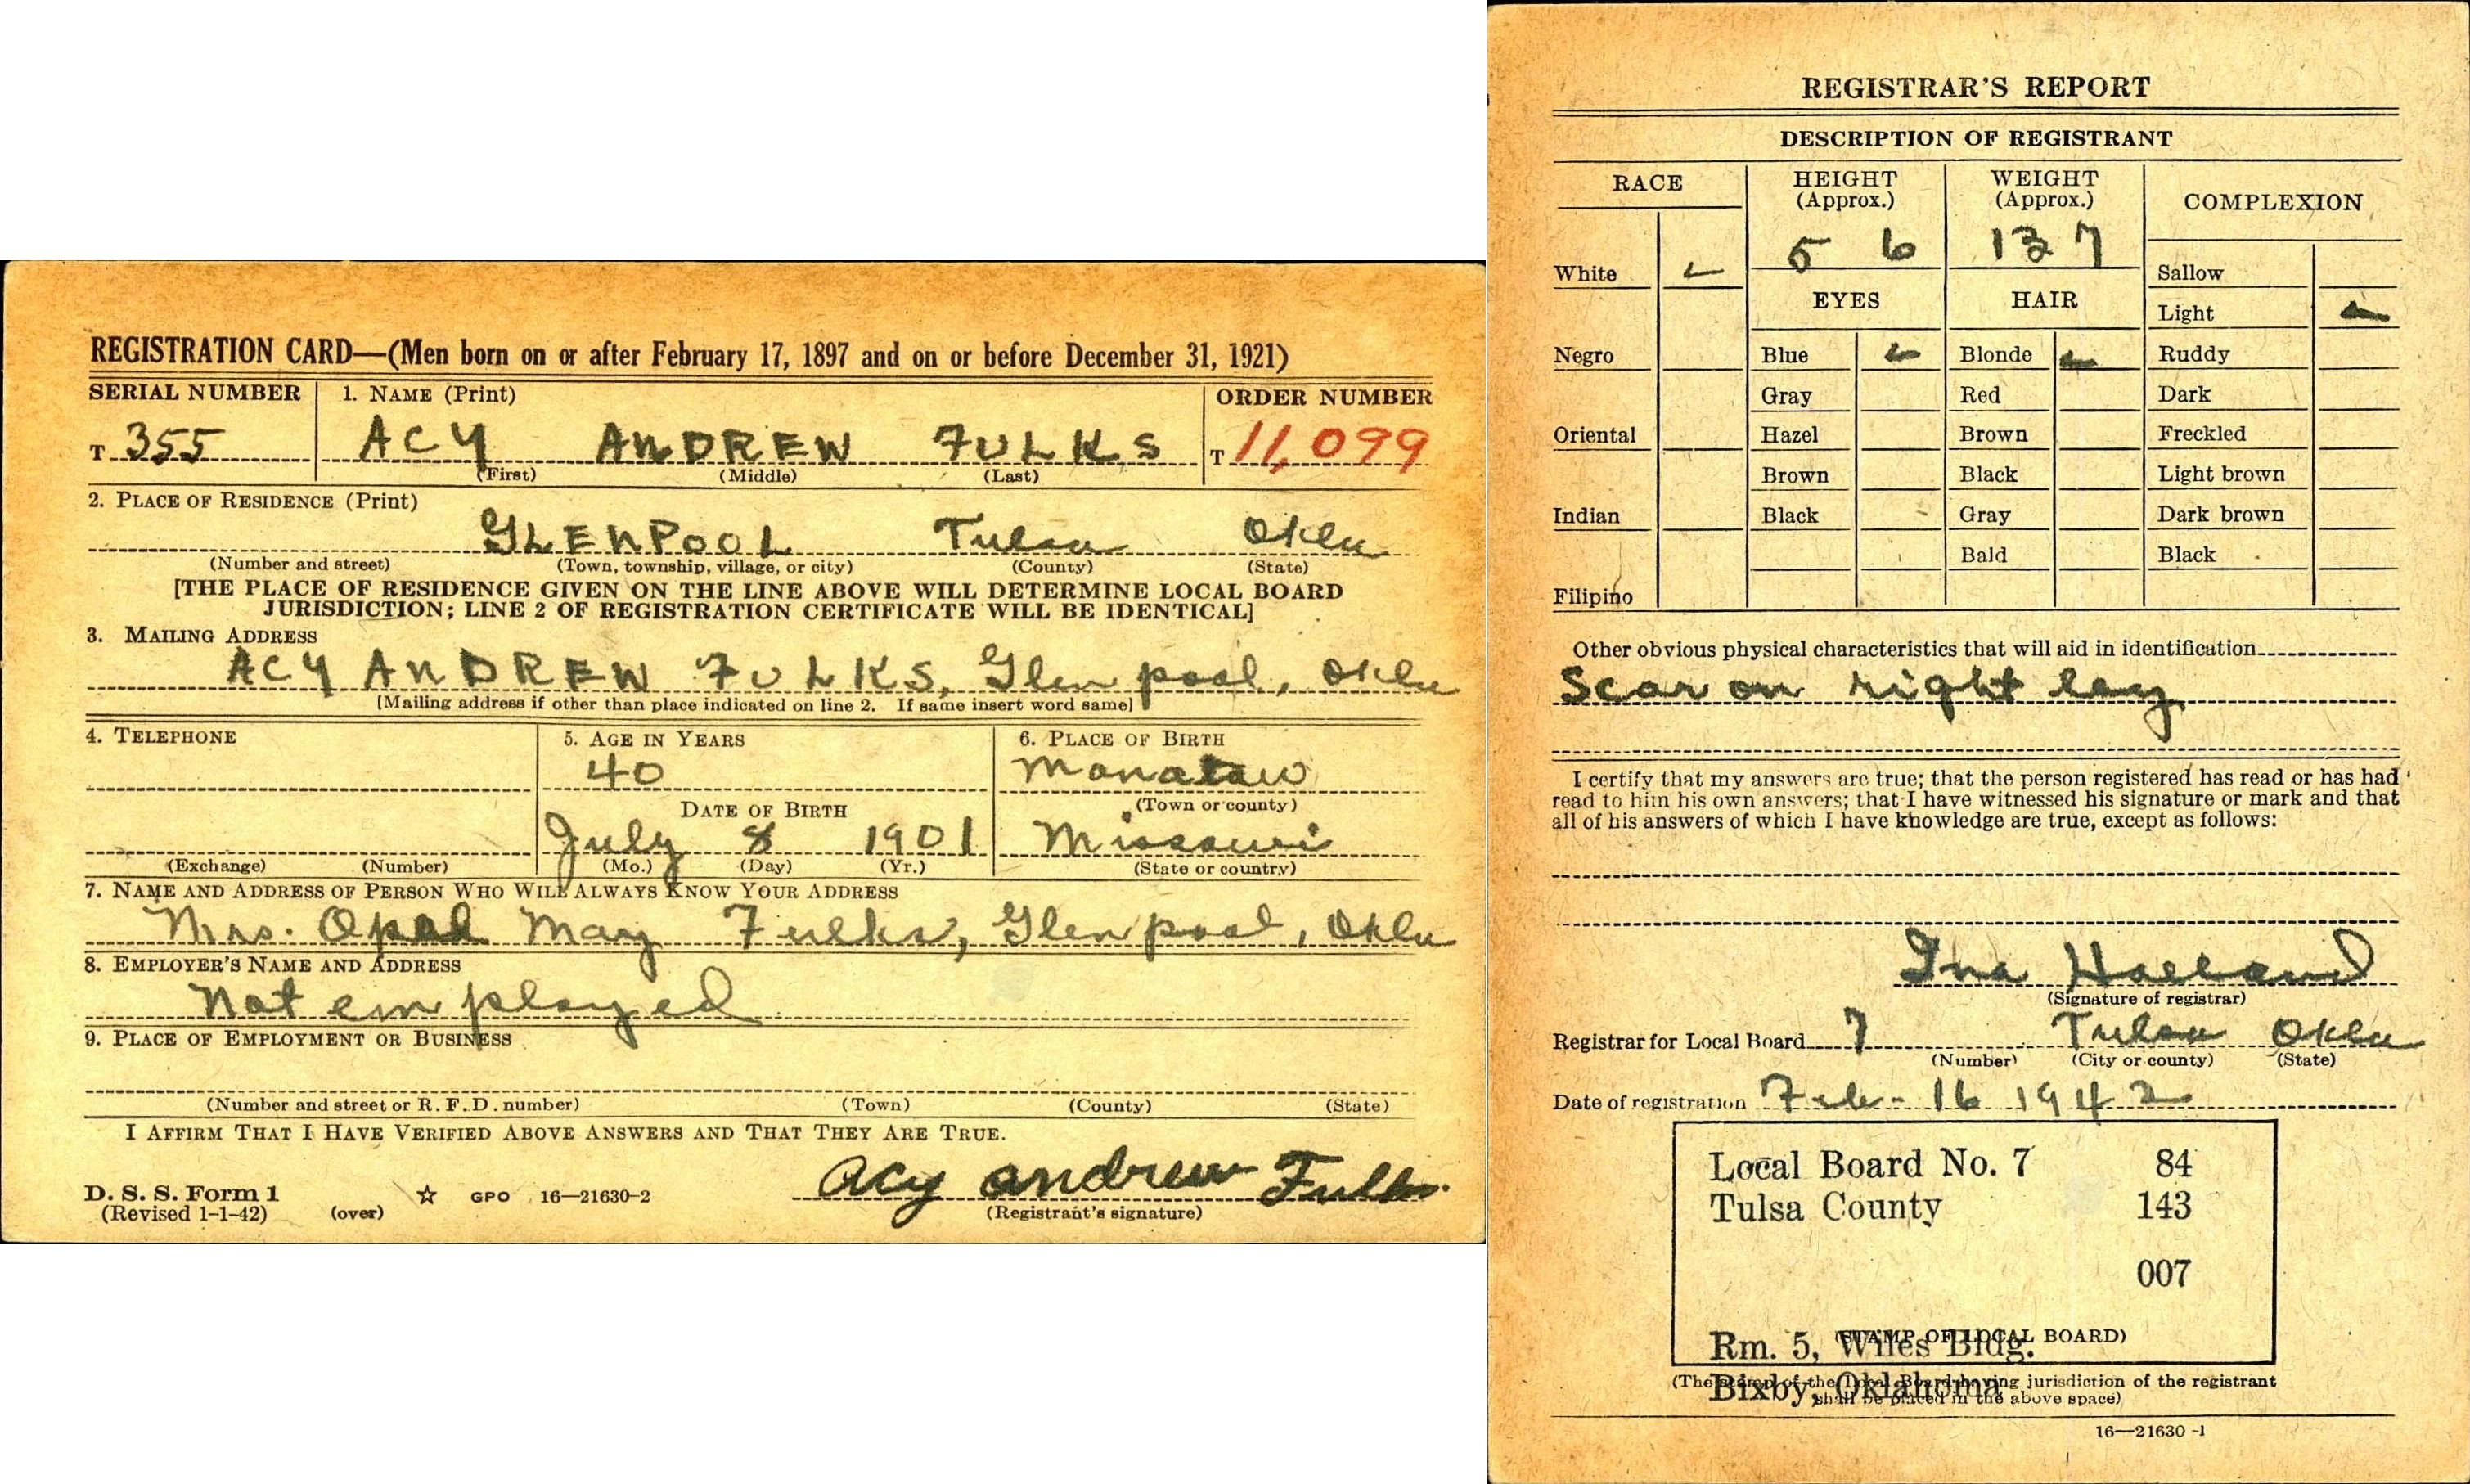 REGISTRATION CARD—(Men born on or after February 17, 1897 and on or before December 31, 1921)
SERIAL NUMBER 1. NAME (Print) ORDER NUMBER
T 355 ACY ANDREW FULKS T 11,099
(First) (Middle) (Last)
2. PLACE OF RESIDENCE (Print)
GLENPOOL Tulsa Okla
(Number and street) (Town, township, village, or city) (County) (State)
[THE PLACE OF RESIDENCE GIVEN ON THE LINE ABOVE WILL DETERMINE LOCAL BOARD
JURISDICTION; LINE 2 OF REGISTRATION CERTIFICATE WILL BE IDENTICAL]
3. MAILING ADDRESS
ACY ANDREW FULKS, Glenpool, Okla
[Mailing address if other than place indicated on line 2. If same insert word same]
4. TELEPHONE 5. AGE IN YEARS 6. PLACE OF BIRTH
40
DATE OF BIRTH (Town or county)
July 8 1901 Missouri
(Exchange) (Number) (Mo.) (Day) (Yr.) (State or country)
7. NAME AND ADDRESS OF PERSON WHO WILL ALWAYS KNOW YOUR ADDRESS
Mrs. Opal May Fulks, Glenpool, Okla
8. EMPLOYER'S NAME AND ADDRESS
Not employed
9. PLACE OF EMPLOYMENT OR BUSINESS
(Number and street or R. F. D. number) (Town) (County) (State)
I AFFIRM THAT I HAVE VERIFIED ABOVE ANSWERS AND THAT THEY ARE TRUE.
Acy Andrew Fulks.
D. S. S. Form 1 ☆ GPO 16—21630-2
(Revised 1-1-42) (over) (Registrant's signature)
REGISTRAR'S REPORT
DESCRIPTION OF REGISTRANT
RACE HEIGHT (Approx.) WEIGHT (Approx.) COMPLEXION
5 6 137
White Sallow
EYES HAIR Light
Negro Blue Blonde Ruddy
Gray Red Dark
Oriental Hazel Brown Freckled
Brown Black Light brown
Indian Black Gray Dark brown
Bald Black
Filipino
Other obvious physical characteristics that will aid in identification
Scar on right leg
I certify that my answers are true; that the person registered has read or has had
read to him his own answers; that I have witnessed his signature or mark and that
all of his answers of which I have knowledge are true, except as follows:
Ina Holland
(Signature of registrar)
Registrar for Local Board 7 Tulsa Okla
(Number) (City or county) (State)
Date of registration Feb - 16 1942
Local Board No. 7 84
Tulsa County 143
007
(STAMP OF LOCAL BOARD)
Rm. 5, Wiles Bldg.
Bixby, Oklahoma
(The stamp of the Local Board having jurisdiction of the registrant
shall be placed in the above space)
16—21630-1